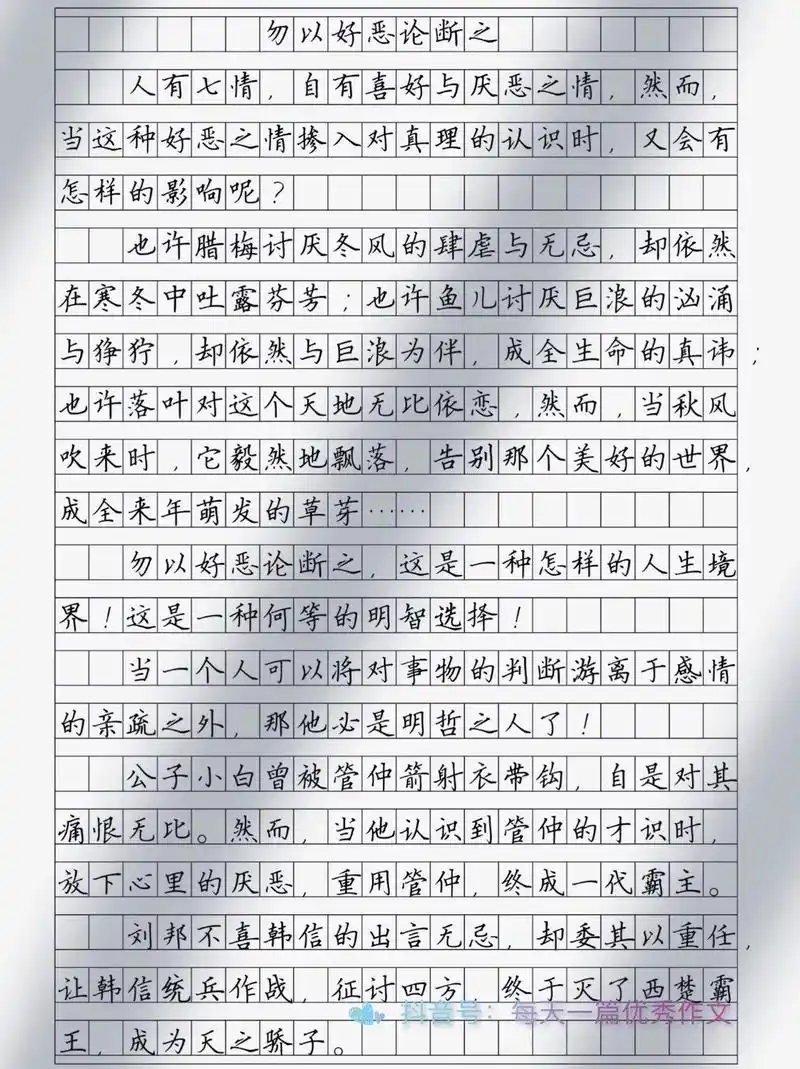 勿以好恶论断之
人有七情，自有喜好与厌恶之情，然而，
当这种好恶之情掺入对真理的认识时，又会有
怎样的影响呢？
也许腊梅讨厌冬风的肆虐与无忌，却依然
在寒冬中吐露芬芳；也许鱼儿讨厌巨浪的汹涌
与狰狞，却依然与巨浪为伴，成全生命的真讳；
也许落叶对这个天地无比依恋，然而，当秋风
吹来时，它毅然地飘落，告别那个美好的世界，
成全来年萌发的草芽……
勿以好恶论断之，这是一种怎样的人生境
界！这是一种何等的明智选择！
当一个人可以将对事物的判断游离于感情
的亲疏之外，那他必是明哲之人了！
公子小白曾被管仲箭射衣带钩，自是对其
痛恨无比。然而，当他认识到管仲的才识时，
放下心里的厌恶，重用管仲，终成一代霸主。
刘邦不喜韩信的出言无忌，却委其以重任，
让韩信统兵作战，征讨四方，终于灭了西楚霸
抖音号：每天一篇优秀作文
王，成为天之骄子。